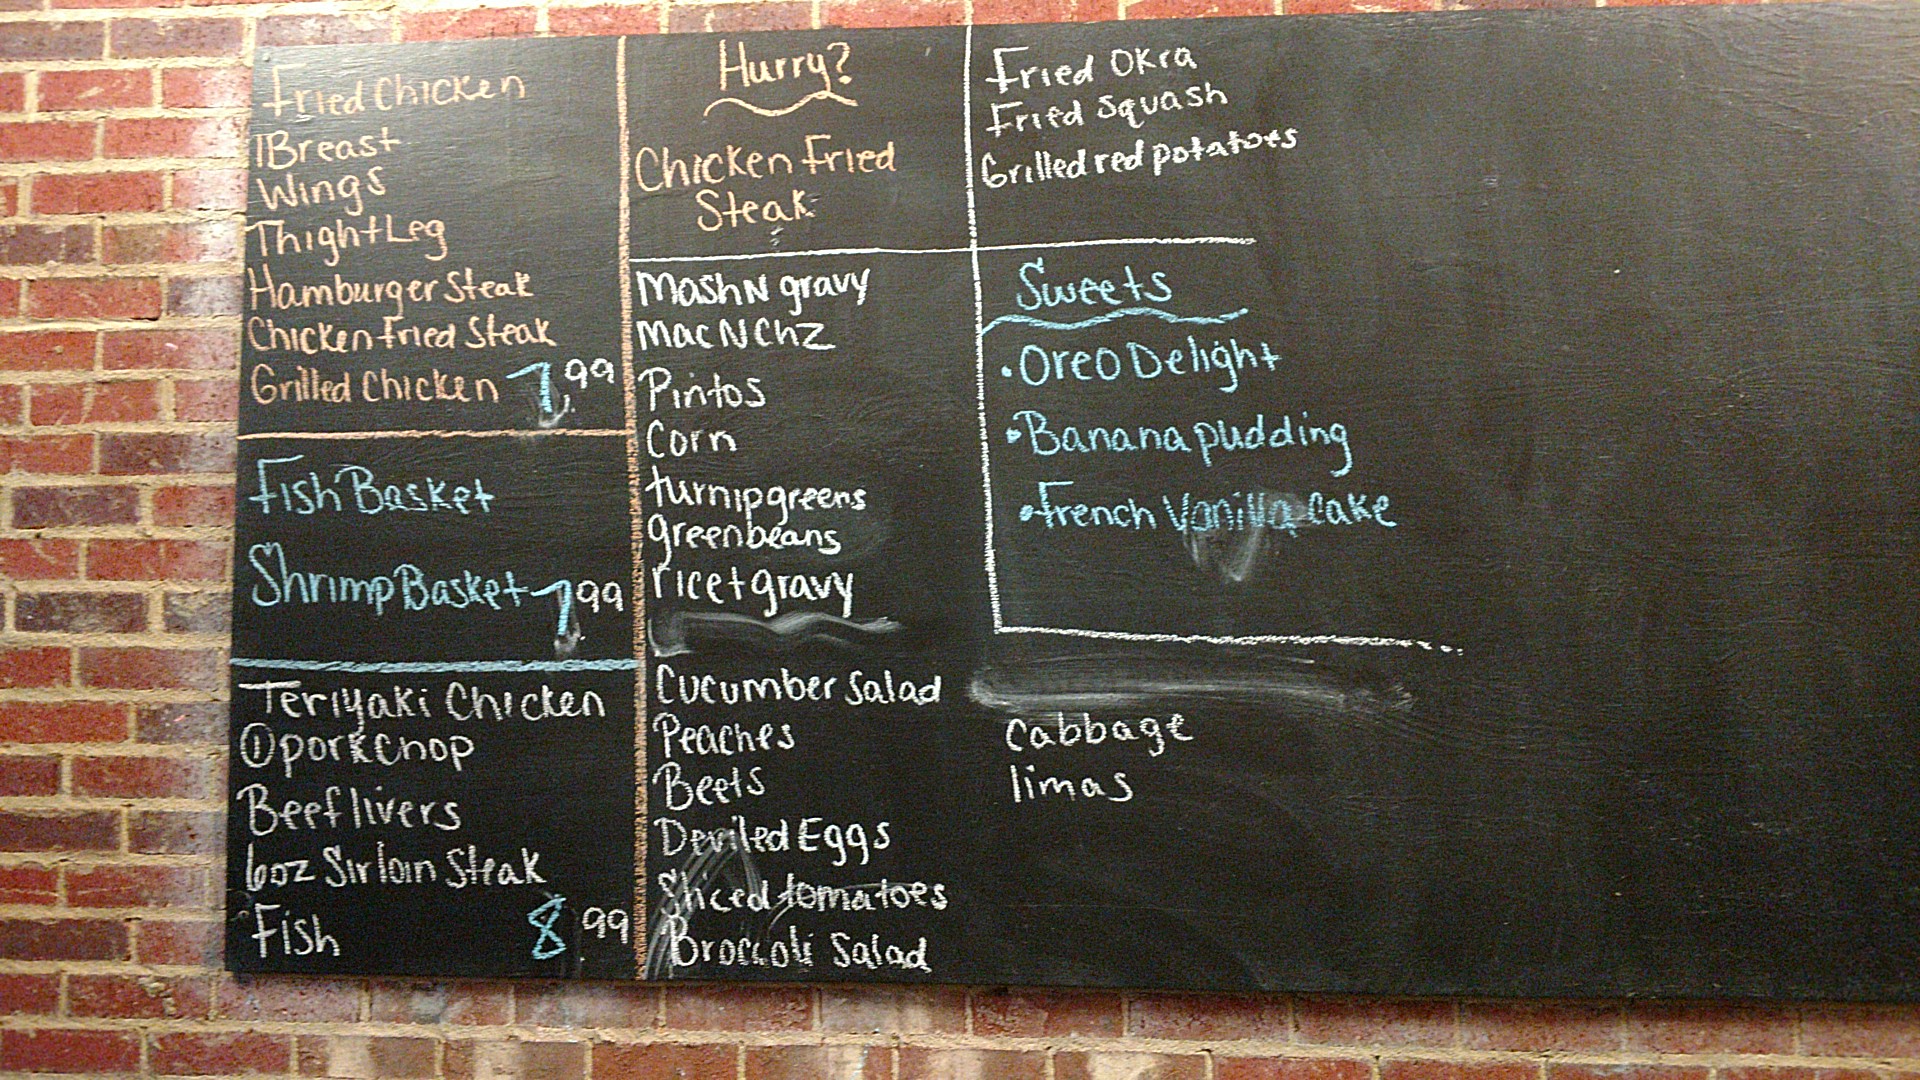 Fried Chicken
1Breast
Wings
Thigh+Leg
Hamburger Steak
Chicken Fried Steak
Grilled Chicken 7.99
Fish Basket
Shrimp Basket 7.99
Teriyaki Chicken
① porkchop
Beef livers
6oz Sirloin Steak
Fish 8 99
Hurry?
Chicken Fried
Steak
Mash N gravy
Mac N Chz
Pintos
Corn
turnip greens
greenbeans
rice+gravy
Cucumber Salad
Peaches
Beets
Deviled Eggs
Sliced tomatoes
Broccoli Salad
Fried Okra
Fried Squash
Grilled red potatoes
Sweets
• Oreo Delight
• Banana pudding
• French Vanilla Cake
Cabbage
limas